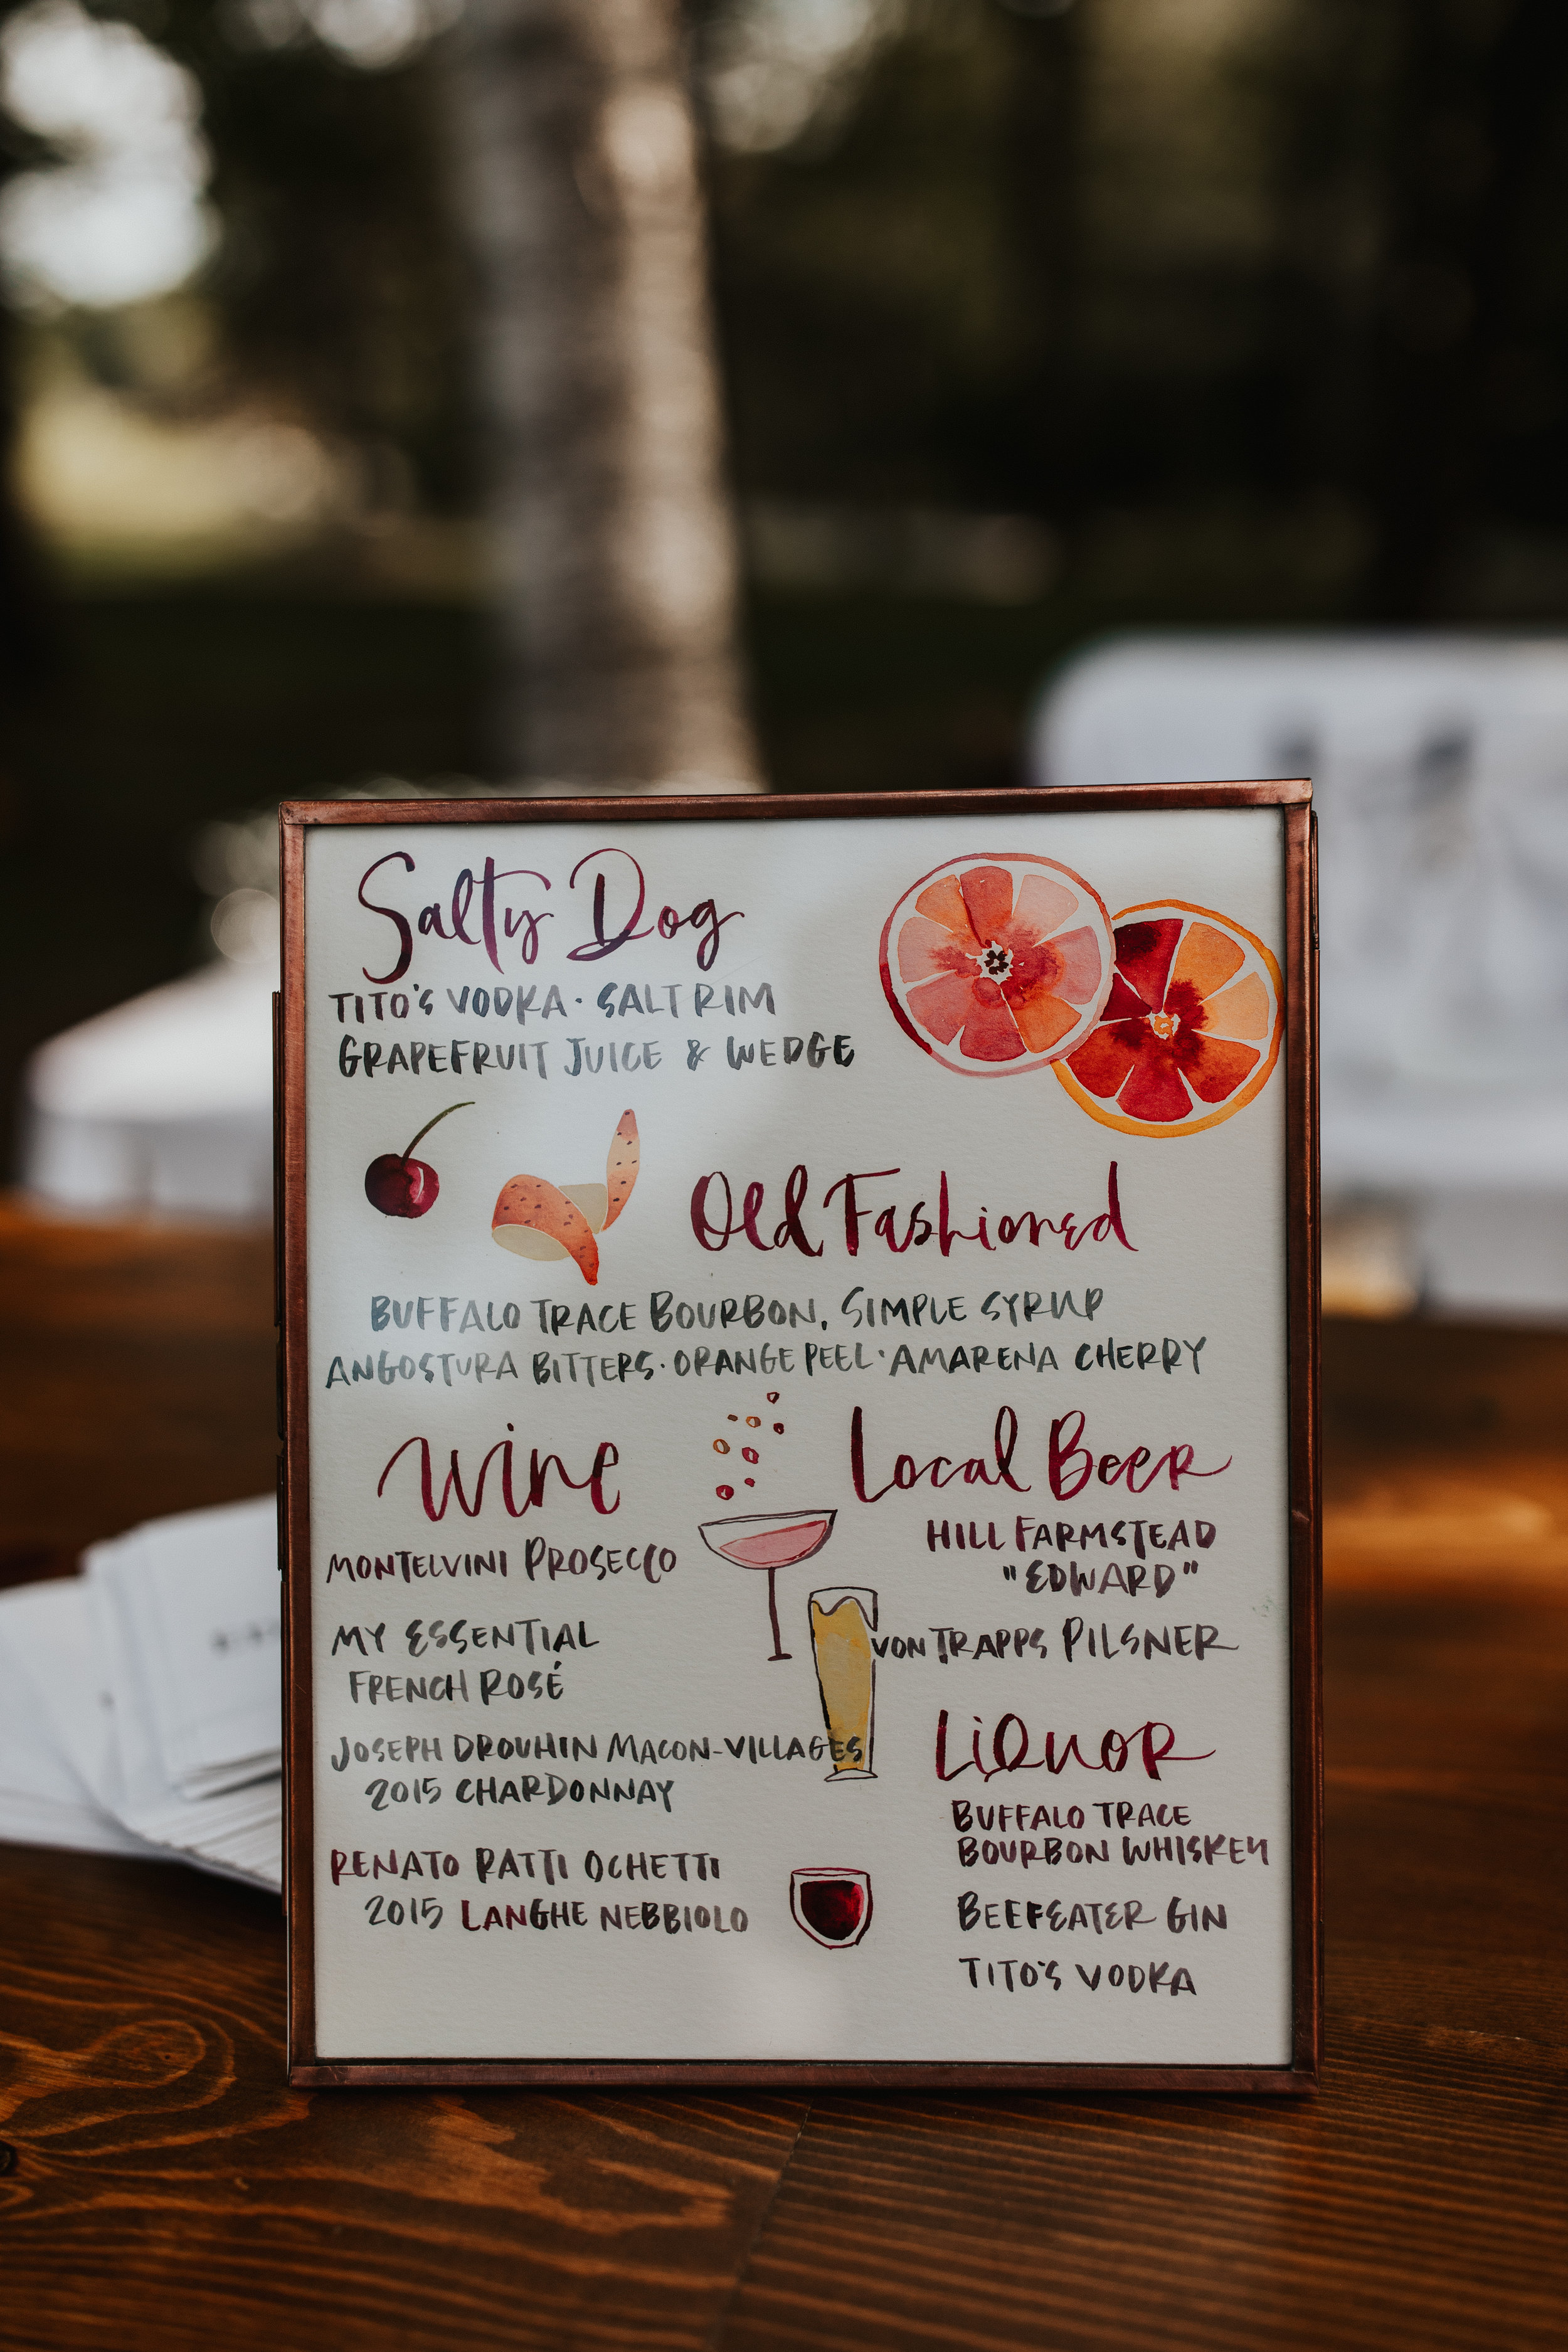 Salty Dog
TITO'S VODKA · SALT RIM
GRAPEFRUIT JUICE & WEDGE
Old Fashioned
BUFFALO TRACE BOURBON, SIMPLE SYRUP
ANGOSTURA BITTERS · ORANGE PEEL · AMARENA CHERRY
Wine
MONTELVINI PROSECCO
MY ESSENTIAL
FRENCH ROSÉ
JOSEPH DROUHIN MACON-VILLAGES
2015 CHARDONNAY
RENATO RATTI OCHETTI
2015 LANGHE NEBBIOLO
Local Beer
HILL FARMSTEAD
"EDWARD"
VON TRAPPS PILSNER
LIQUOR
BUFFALO TRACE
BOURBON WHISKEY
BEEFEATER GIN
TITO'S VODKA